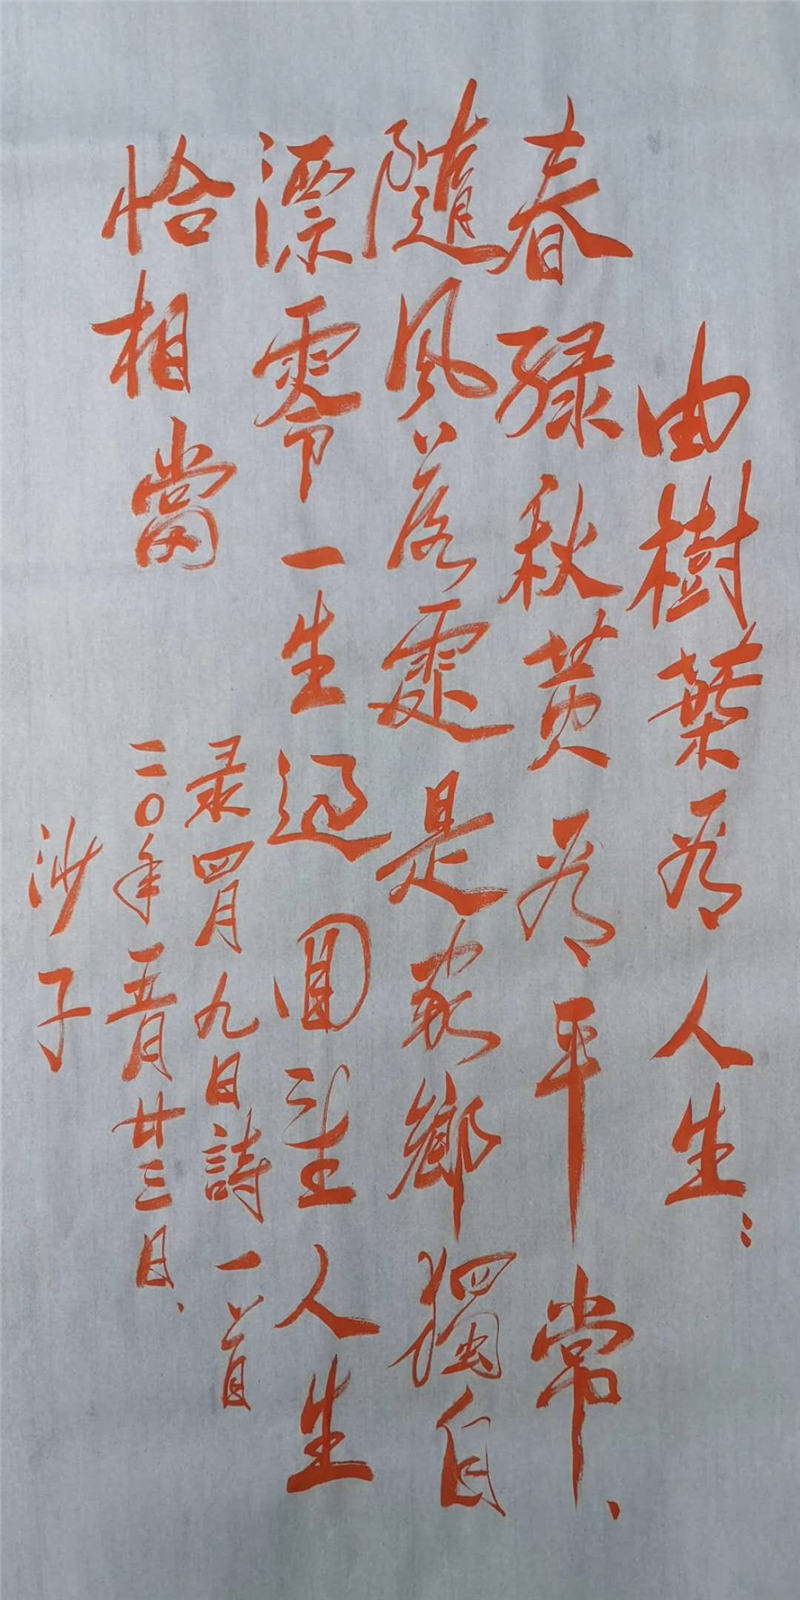 由樹葉看人生：
春綠秋黄看平常、
隨風落處是家鄉獨自
漂零一生過圓 人生
恰相當
录四月九日詩一首
二〇年五月廿三日、
沙子